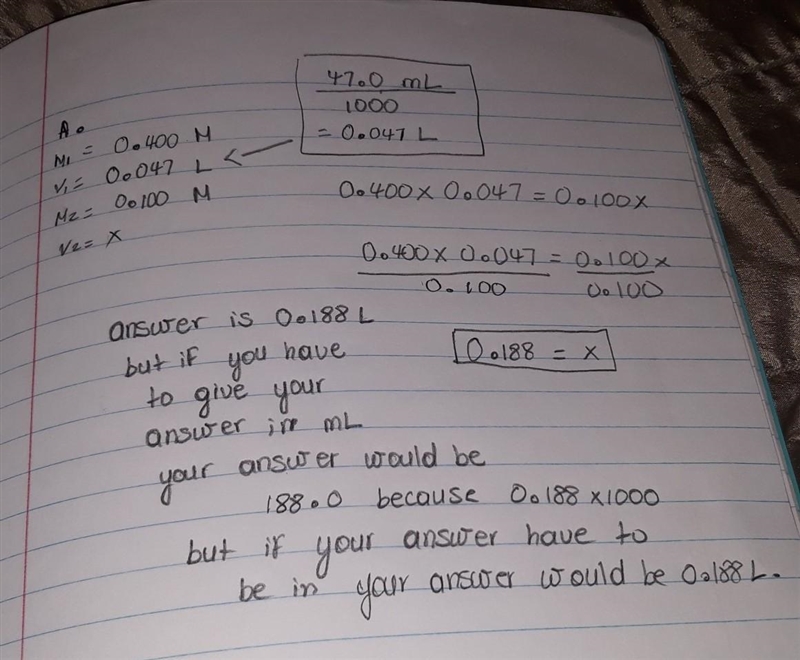 47.0 mL
1000
= 0.047 L
A.
M1 = 0.400 M
V1 = 0.047 L
M2 = 0.100 M
V2 = x
0.400 x 0.047 = 0.100x
0.400 x 0.047 = 0.100x
0.100 0.100
0.188 = x
answer is 0.188 L
but if you have
to give your
answer in mL
your answer would be
188.0 because 0.188 x 1000
but if your answer have to
be in your answer would be 0.188 L.